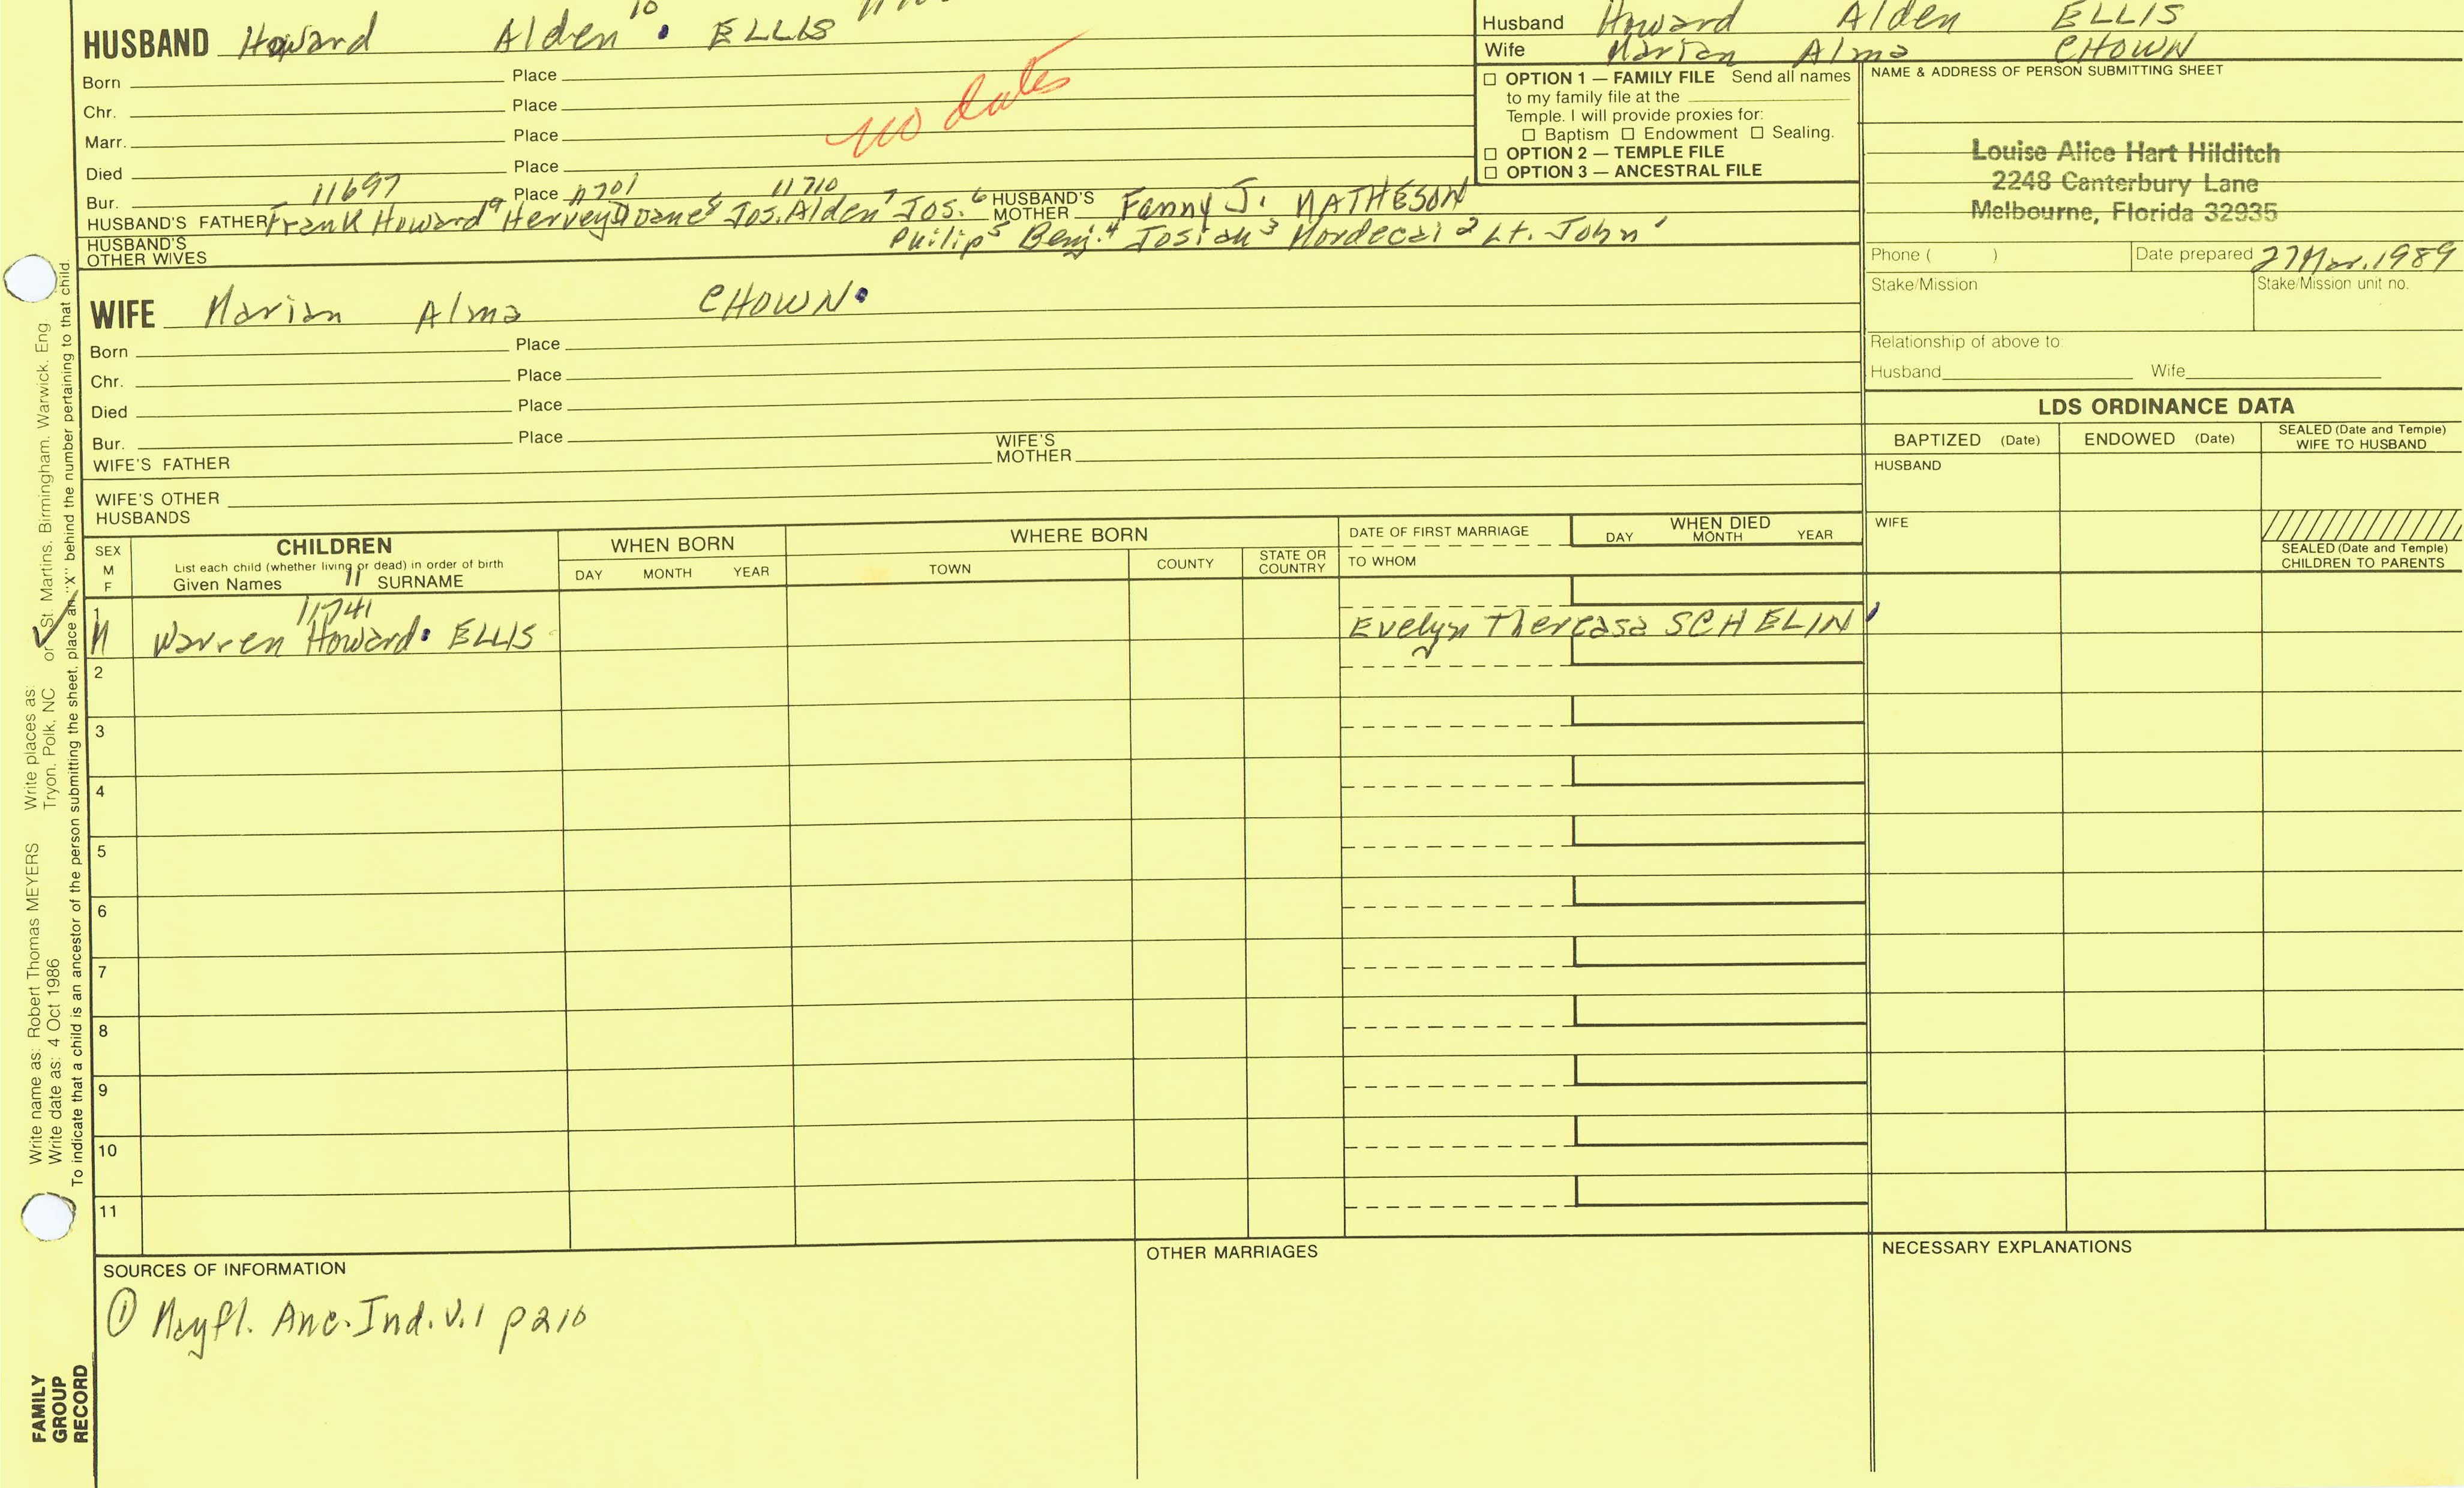 HUSBAND Howard Alden 10 ELLIS
Born Place
Chr. Place
Marr. Place
Died Place
Bur. Place
no dates
11697 11701 11710
HUSBAND'S FATHER Frank Howard 9 Hervey Doane 8 Jos. Alden 7 Jos. 6 HUSBAND'S MOTHER Fanny J. MATHESON
Philip 5 Benj. 4 Josiah 3 Mordecai 2 Lt. John 1
HUSBAND'S OTHER WIVES
Husband Howard Alden ELLIS
Wife Marian Alma CHOWN
☐ OPTION 1 — FAMILY FILE Send all names
to my family file at the
Temple. I will provide proxies for:
☐ Baptism ☐ Endowment ☐ Sealing.
☐ OPTION 2 — TEMPLE FILE
☐ OPTION 3 — ANCESTRAL FILE
NAME & ADDRESS OF PERSON SUBMITTING SHEET
Louise Alice Hart Hilditch
2248 Canterbury Lane
Melbourne, Florida 32935
Phone ( ) Date prepared 27 Mar. 1989
Stake/Mission Stake/Mission unit no.
Relationship of above to:
Husband Wife
WIFE Marian Alma CHOWN
Born Place
Chr. Place
Died Place
Bur. Place
WIFE'S FATHER WIFE'S MOTHER
WIFE'S OTHER HUSBANDS
LDS ORDINANCE DATA
BAPTIZED (Date) ENDOWED (Date) SEALED (Date and Temple) WIFE TO HUSBAND
HUSBAND
WIFE
SEALED (Date and Temple) CHILDREN TO PARENTS
SEX M F
CHILDREN
List each child (whether living or dead) in order of birth
Given Names 11 SURNAME
WHEN BORN
DAY MONTH YEAR
WHERE BORN
TOWN COUNTY STATE OR COUNTRY
DATE OF FIRST MARRIAGE
TO WHOM
WHEN DIED
DAY MONTH YEAR
11741
1 M Warren Howard ELLIS Evelyn Thereasa SCHELIN
2
3
4
5
6
7
8
9
10
11
SOURCES OF INFORMATION
① Mayfl. Anc. Ind. V.1 p210
OTHER MARRIAGES
NECESSARY EXPLANATIONS
Write name as: Robert Thomas MEYERS Write places as: 
Write date as: 4 Oct 1986 Tryon, Polk, NC or St. Martins, Birmingham, Warwick, Eng
To indicate that a child is an ancestor of the person submitting the sheet, place an "X" behind the number pertaining to that child.
FAMILY
GROUP
RECORD